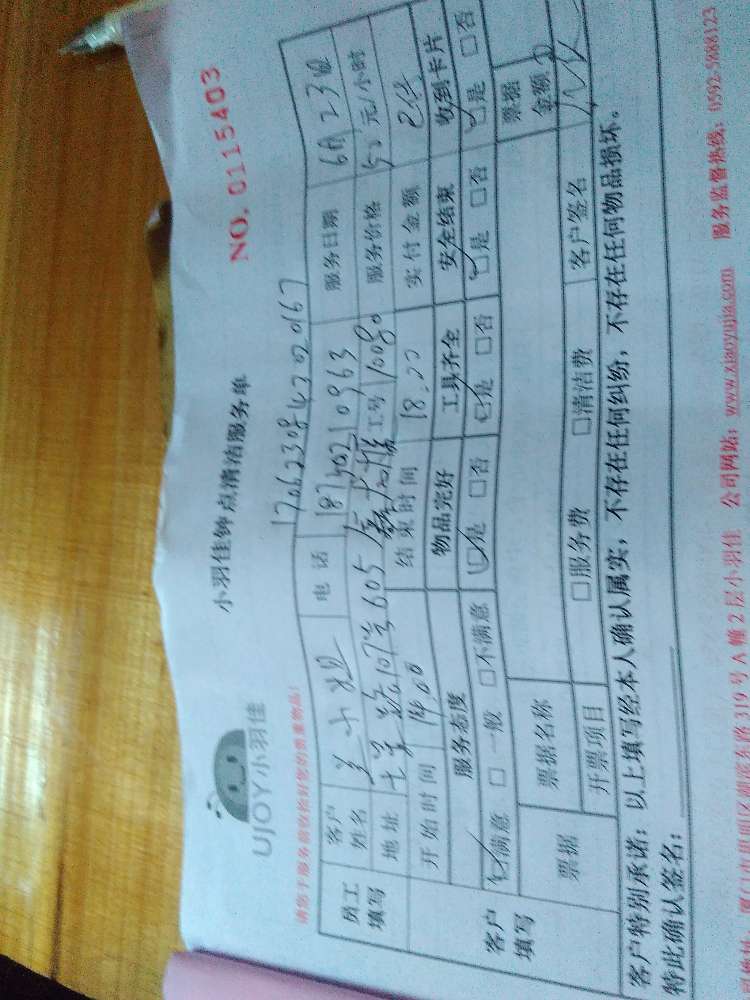 小羽佳钟点清洁服务单
NO. 0115403
UJOY小羽佳
17062308472020167
员工填写
客户姓名 兰小姐 电话 18740210963 服务日期 6月23日
地址 107号605 工号 10080 服务价格 50 元/小时
开始时间 14:00 结束时间 18:00 实付金额 已付
客户填写
服务态度 物品完好 工具齐全 安全结束 收到卡片
☑满意 □一般 □不满意 ☑是 □否 ☑是 □否 ☑是 □否 ☑是 □否
票据 票据名称 票据金额
开票项目 □服务费 □清洁费 客户签名
客户特别承诺：以上填写经本人确认属实，不存在任何纠纷，不存在任何物品损坏。
特此确认签名：
319号A幢2层小羽佳 公司网站：www.xiaoyujia.com 服务监督热线：0592-5888123